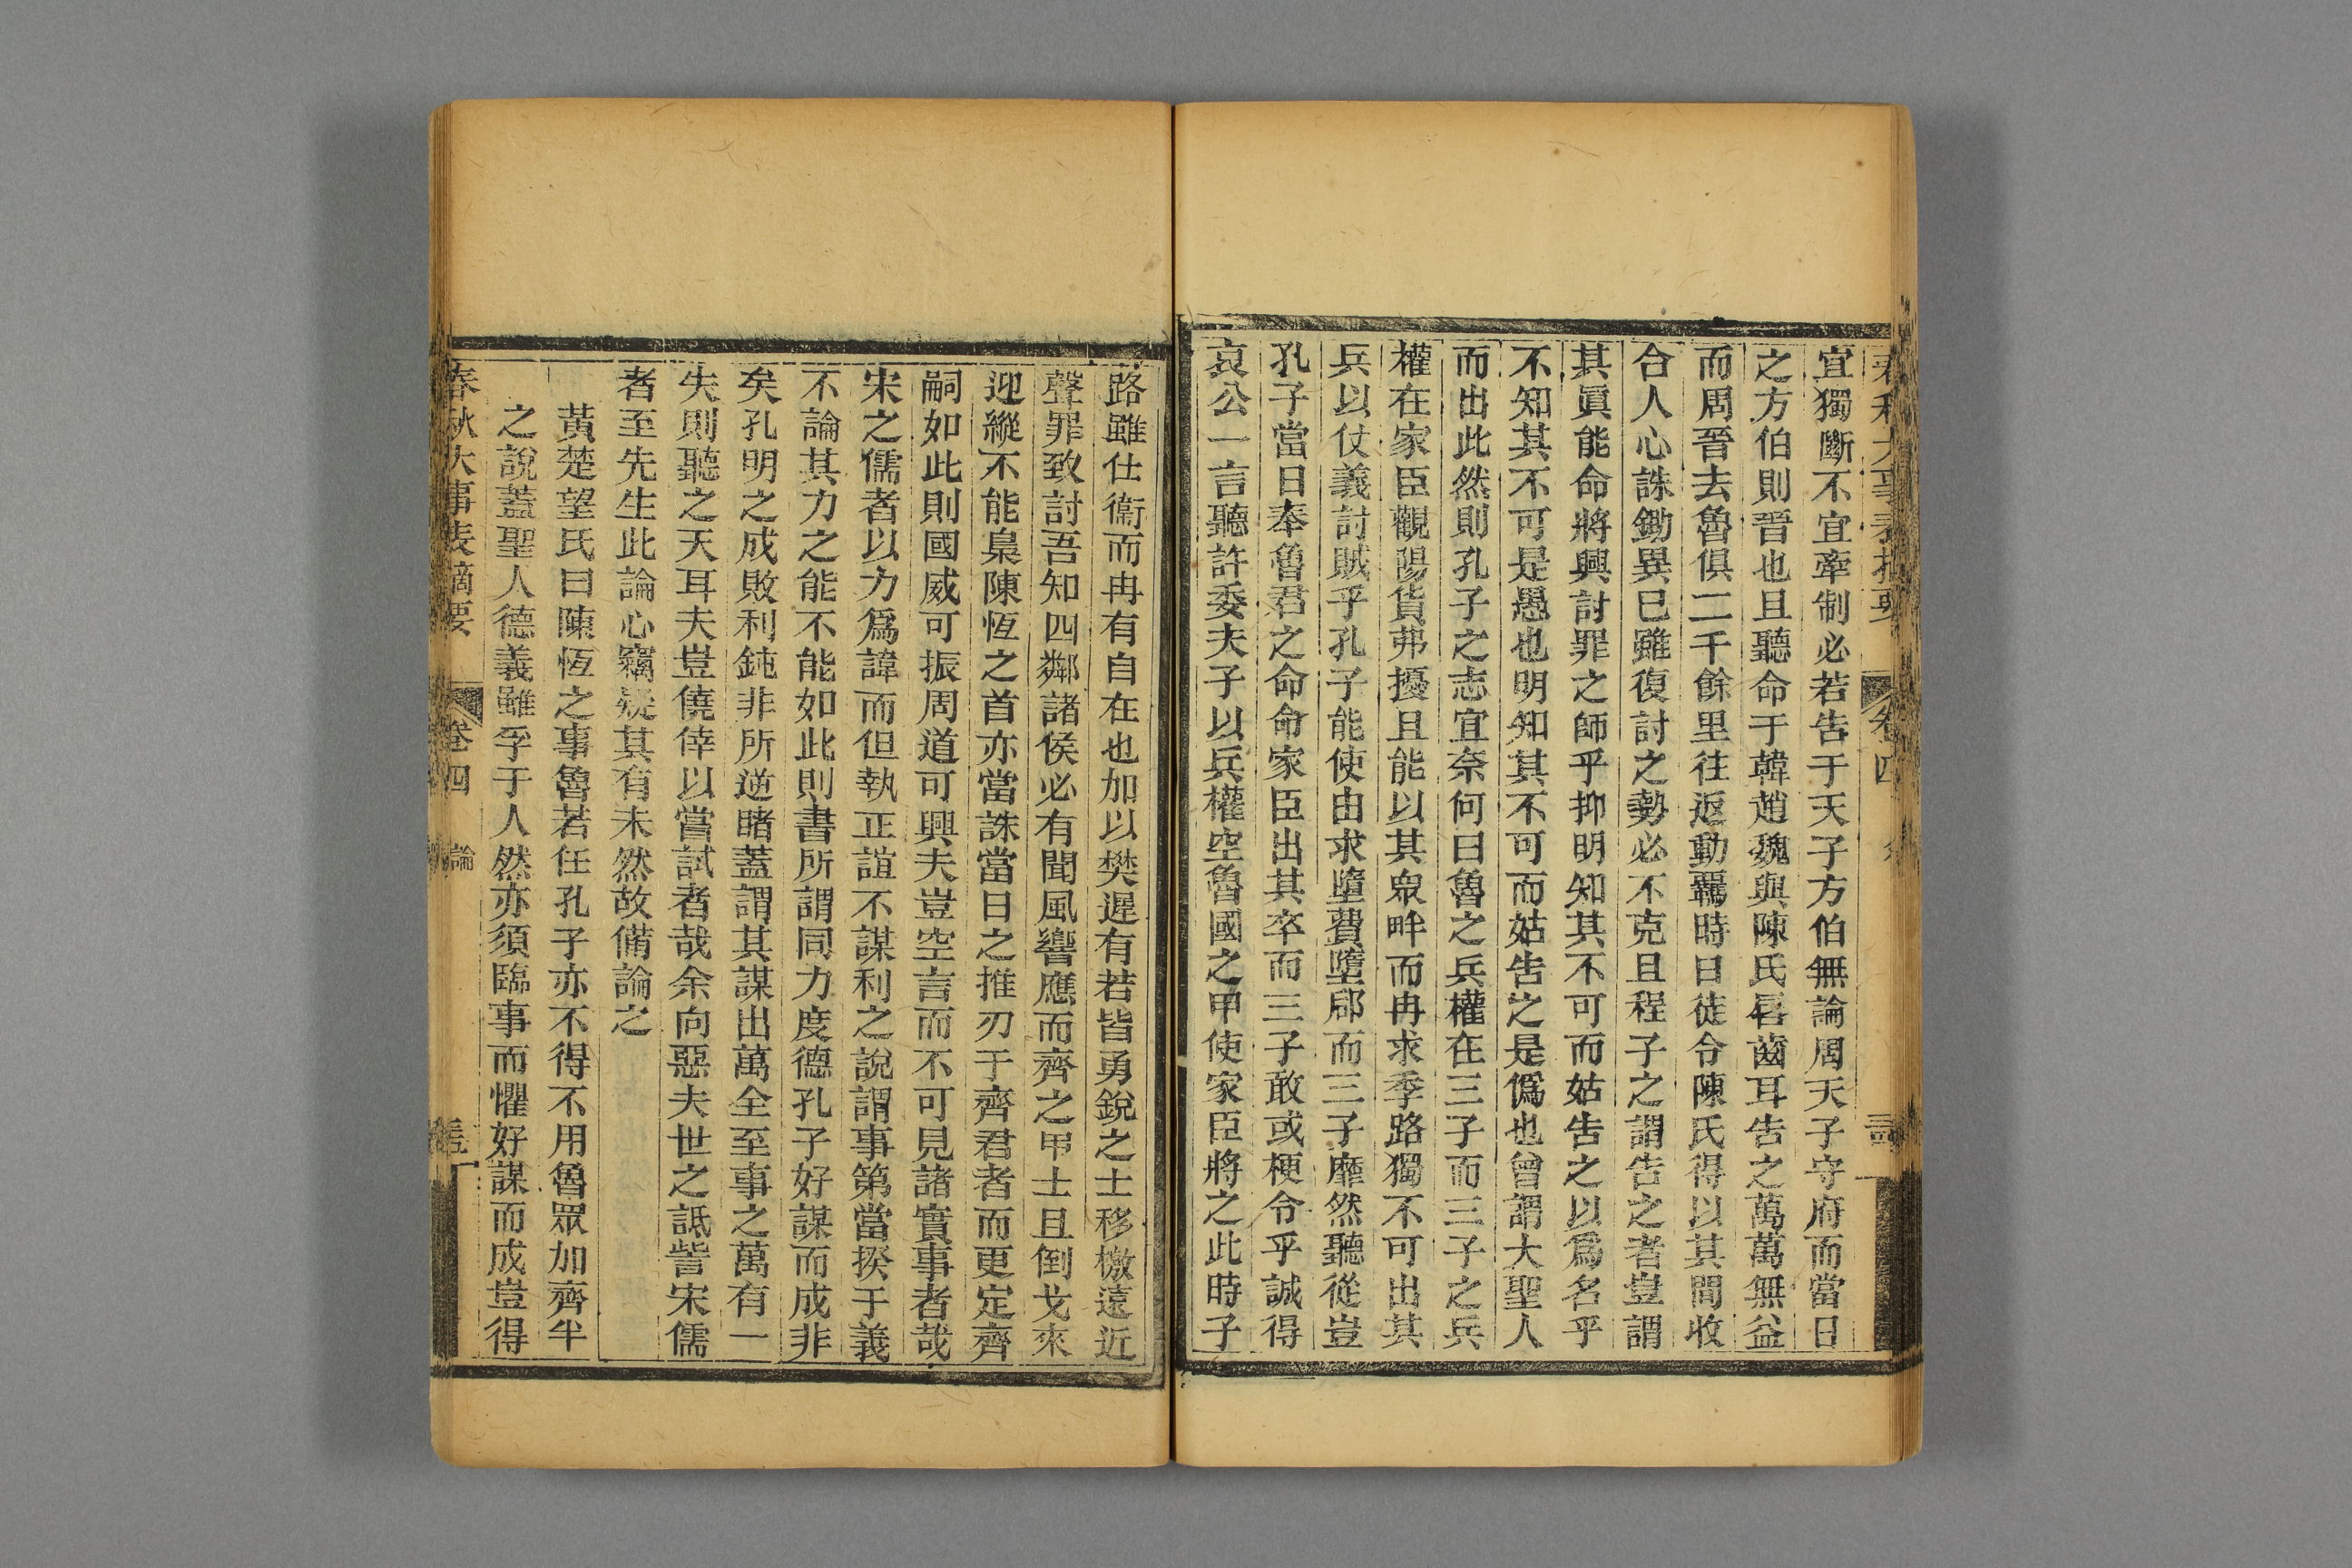 宜獨斷不宜牽制必若告于天子方伯無論周天子守府而當日
之方伯則晉也且聽命于韓趙魏與陳氏唇齒耳告之萬萬無益
而周晉去魯俱二千餘里往返動覊時日徒令陳氏得以其間收
合人心誅鋤異己雖復討之勢必不克且程子之謂告之者豈謂
其眞能命將興討罪之師乎抑明知其不可而姑告之以爲名乎
不知其不可是愚也明知其不可而姑告之是僞也曾謂大聖人
而出此然則孔子之志宜奈何曰魯之兵權在三子而三子之兵
權在家臣觀陽貨弗擾且能以其衆畔而冉求季路獨不可出其
兵以仗義討賊乎孔子能使由求墮費墮郈而三子靡然聽從豈
孔子當日奉魯君之命命家臣出其卒而三子敢或梗令乎誠得
哀公一言聽許委夫子以兵權空魯國之甲使家臣將之此時子
路雖仕衞而冉有自在也加以樊遲有若皆勇銳之士移檄遠近
聲罪致討吾知四鄰諸侯必有聞風響應而齊之甲士且倒戈來
迎縱不能梟陳恆之首亦當誅當日之推刃于齊君者而更定齊
嗣如此則國威可振周道可興夫豈空言而不可見諸實事者哉
宋之儒者以力爲諱而但執正誼不謀利之說謂事第當揆于義
不論其力之能不能如此則書所謂同力度德孔子好謀而成非
矣孔明之成敗利鈍非所逆睹蓋謂其謀出萬全至事之萬有一
失則聽之天耳夫豈僥倖以嘗試者哉余向惡夫世之詆訾宋儒
者至先生此論心竊疑其有未然故備論之
黃楚望氏曰陳恆之事魯若任孔子亦不得不用魯眾加齊半
之說蓋聖人德義雖孚于人然亦須臨事而懼好謀而成豈得
春秋大事表摘要 卷四 論